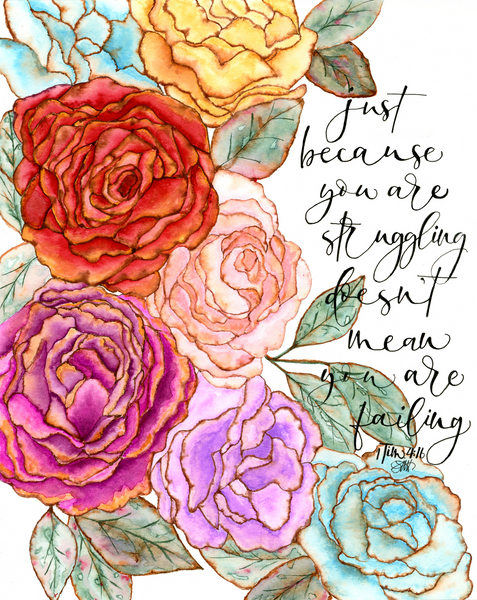 just
because
you are
struggling
doesn't
mean
you are
failing